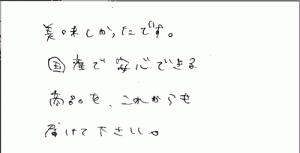 美味しかったです。
国産で安心できる
商品を、これからも
届けて下さい。